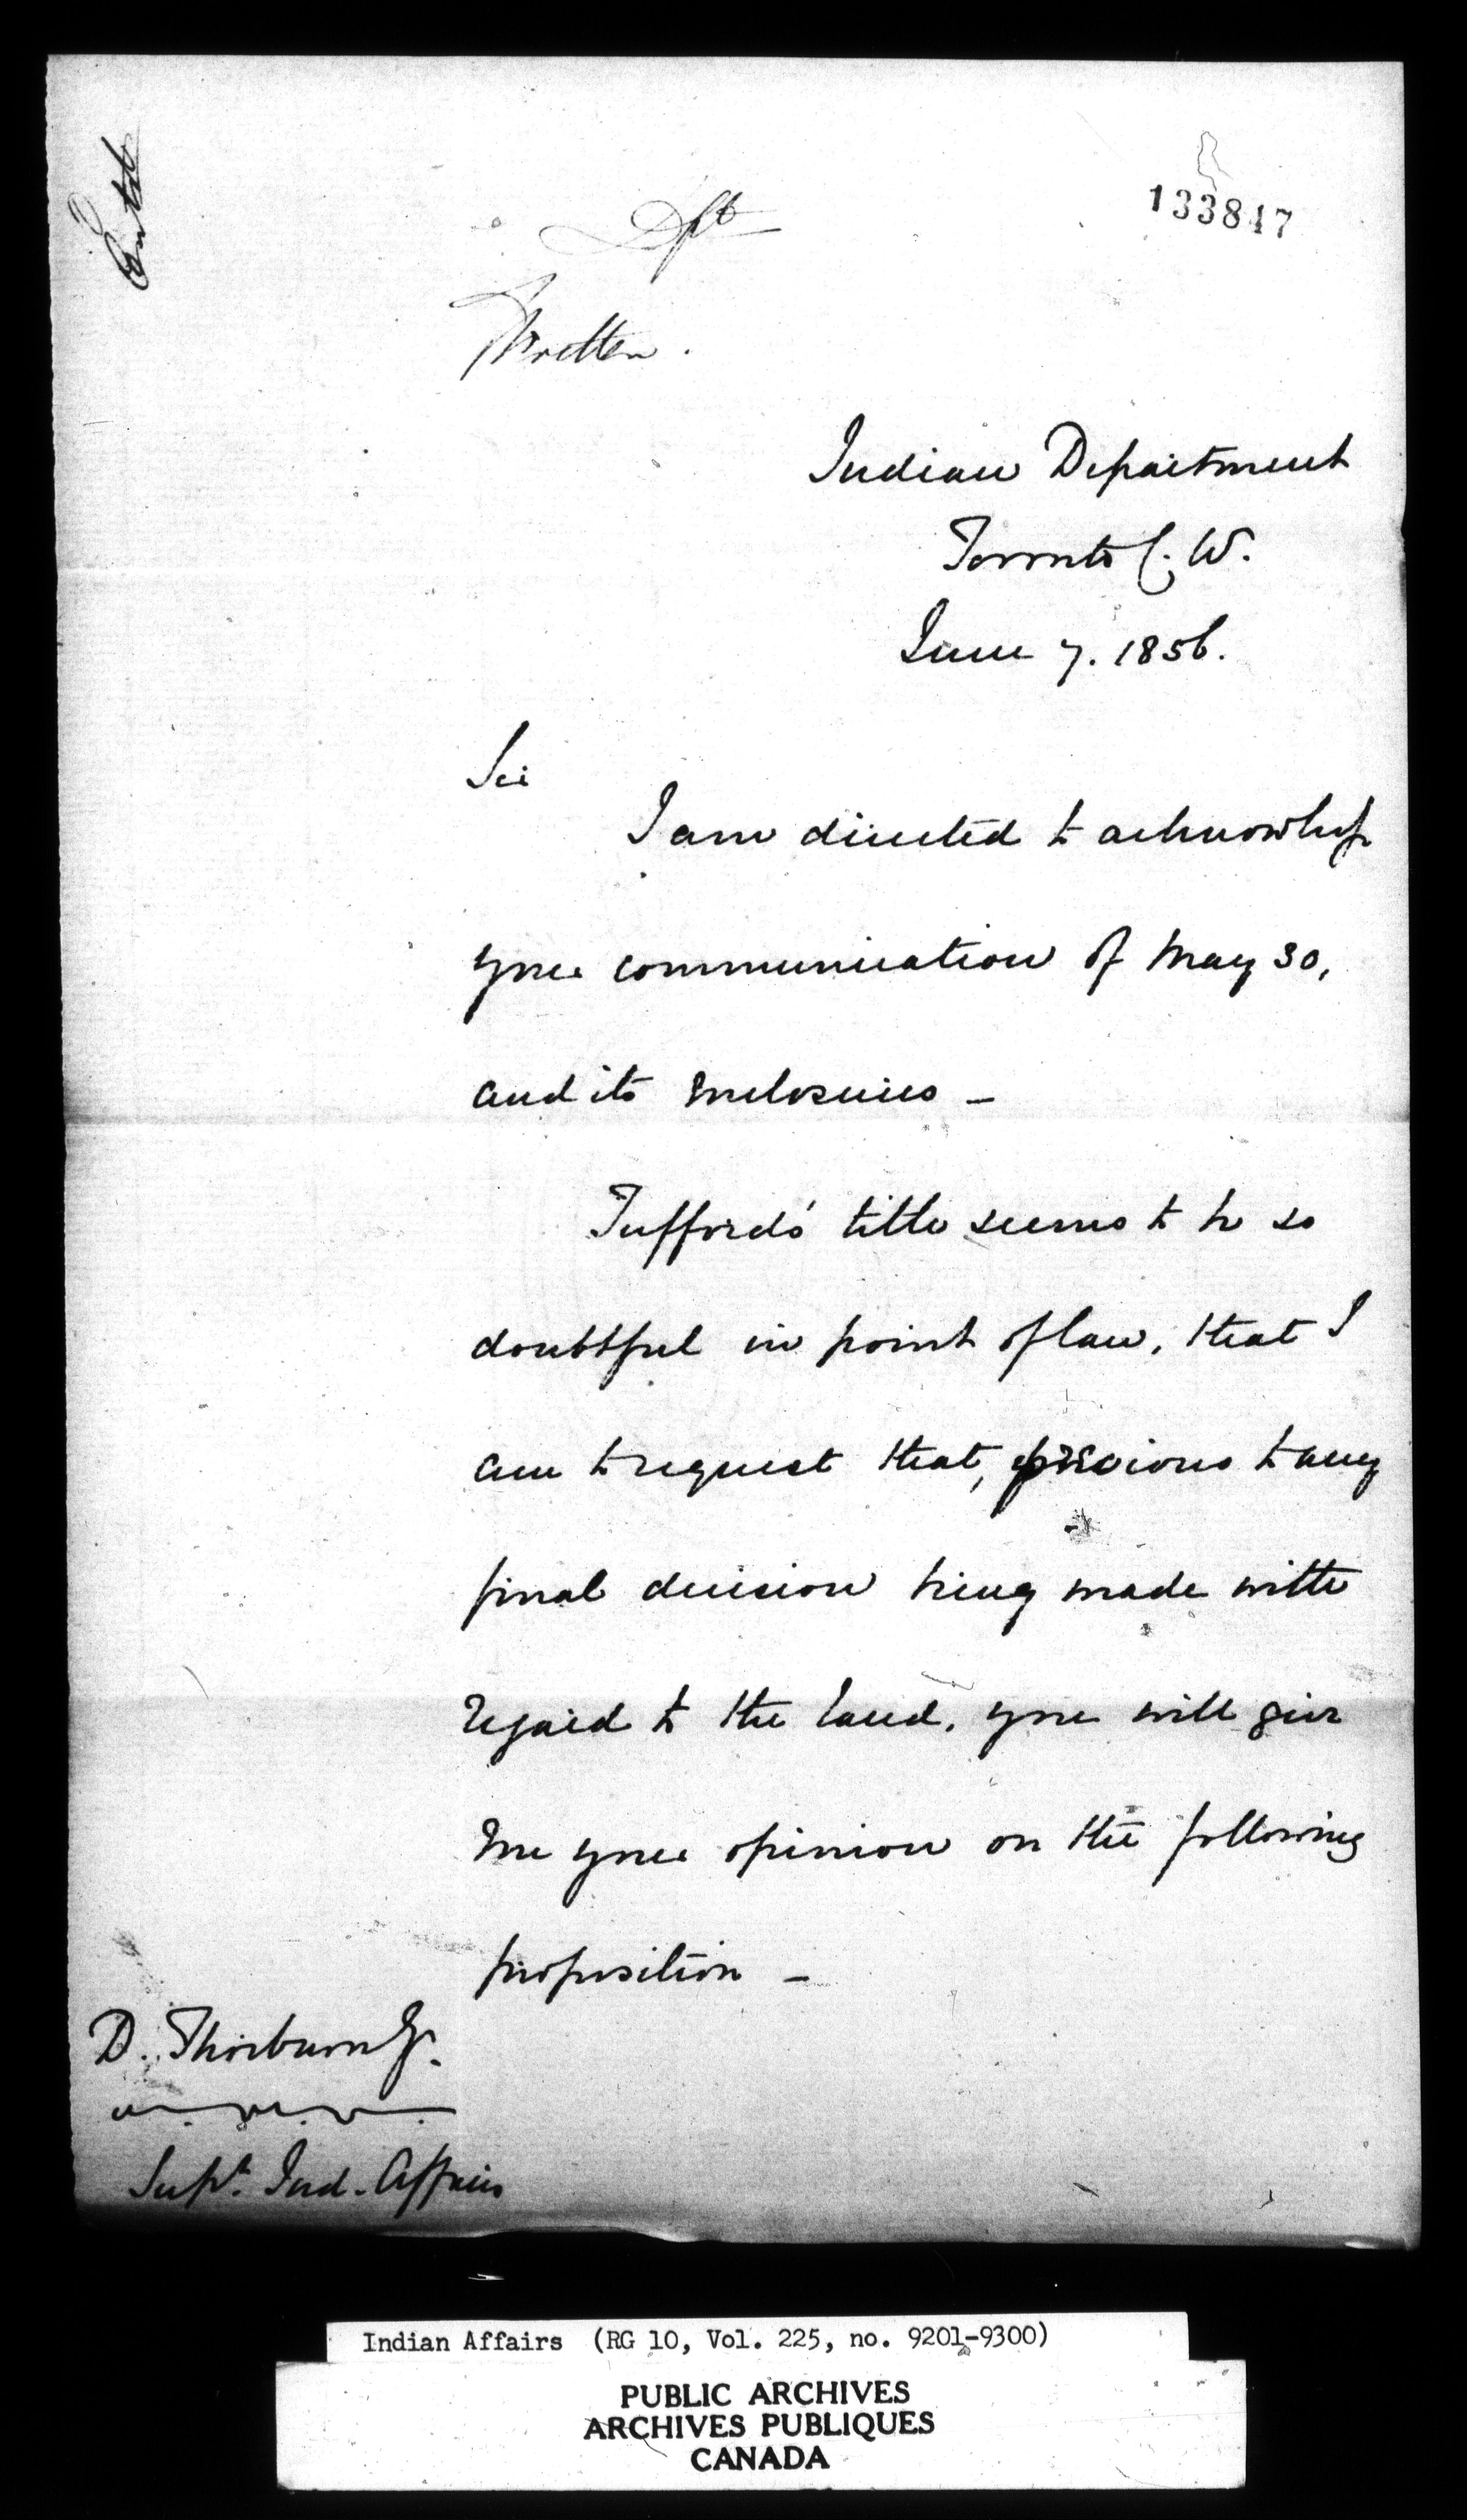 Entd
133847
Dft
Written.
Indian Department
Toronto C. W.
June 7. 1856.
Sir
I am directed to acknowledge
your communication of May 30,
and its enclosures –
Tufford's title seems to be so
doubtful in point of law, that I
am to request that, previous to any
final decision being made with
regard to the land, you will give
me your opinion on the following
proposition –
D. Thorburn Esq.
Supt. Ind. Affairs
Indian Affairs (RG 10, Vol. 225, no. 9201-9300)
PUBLIC ARCHIVES
ARCHIVES PUBLIQUES
CANADA